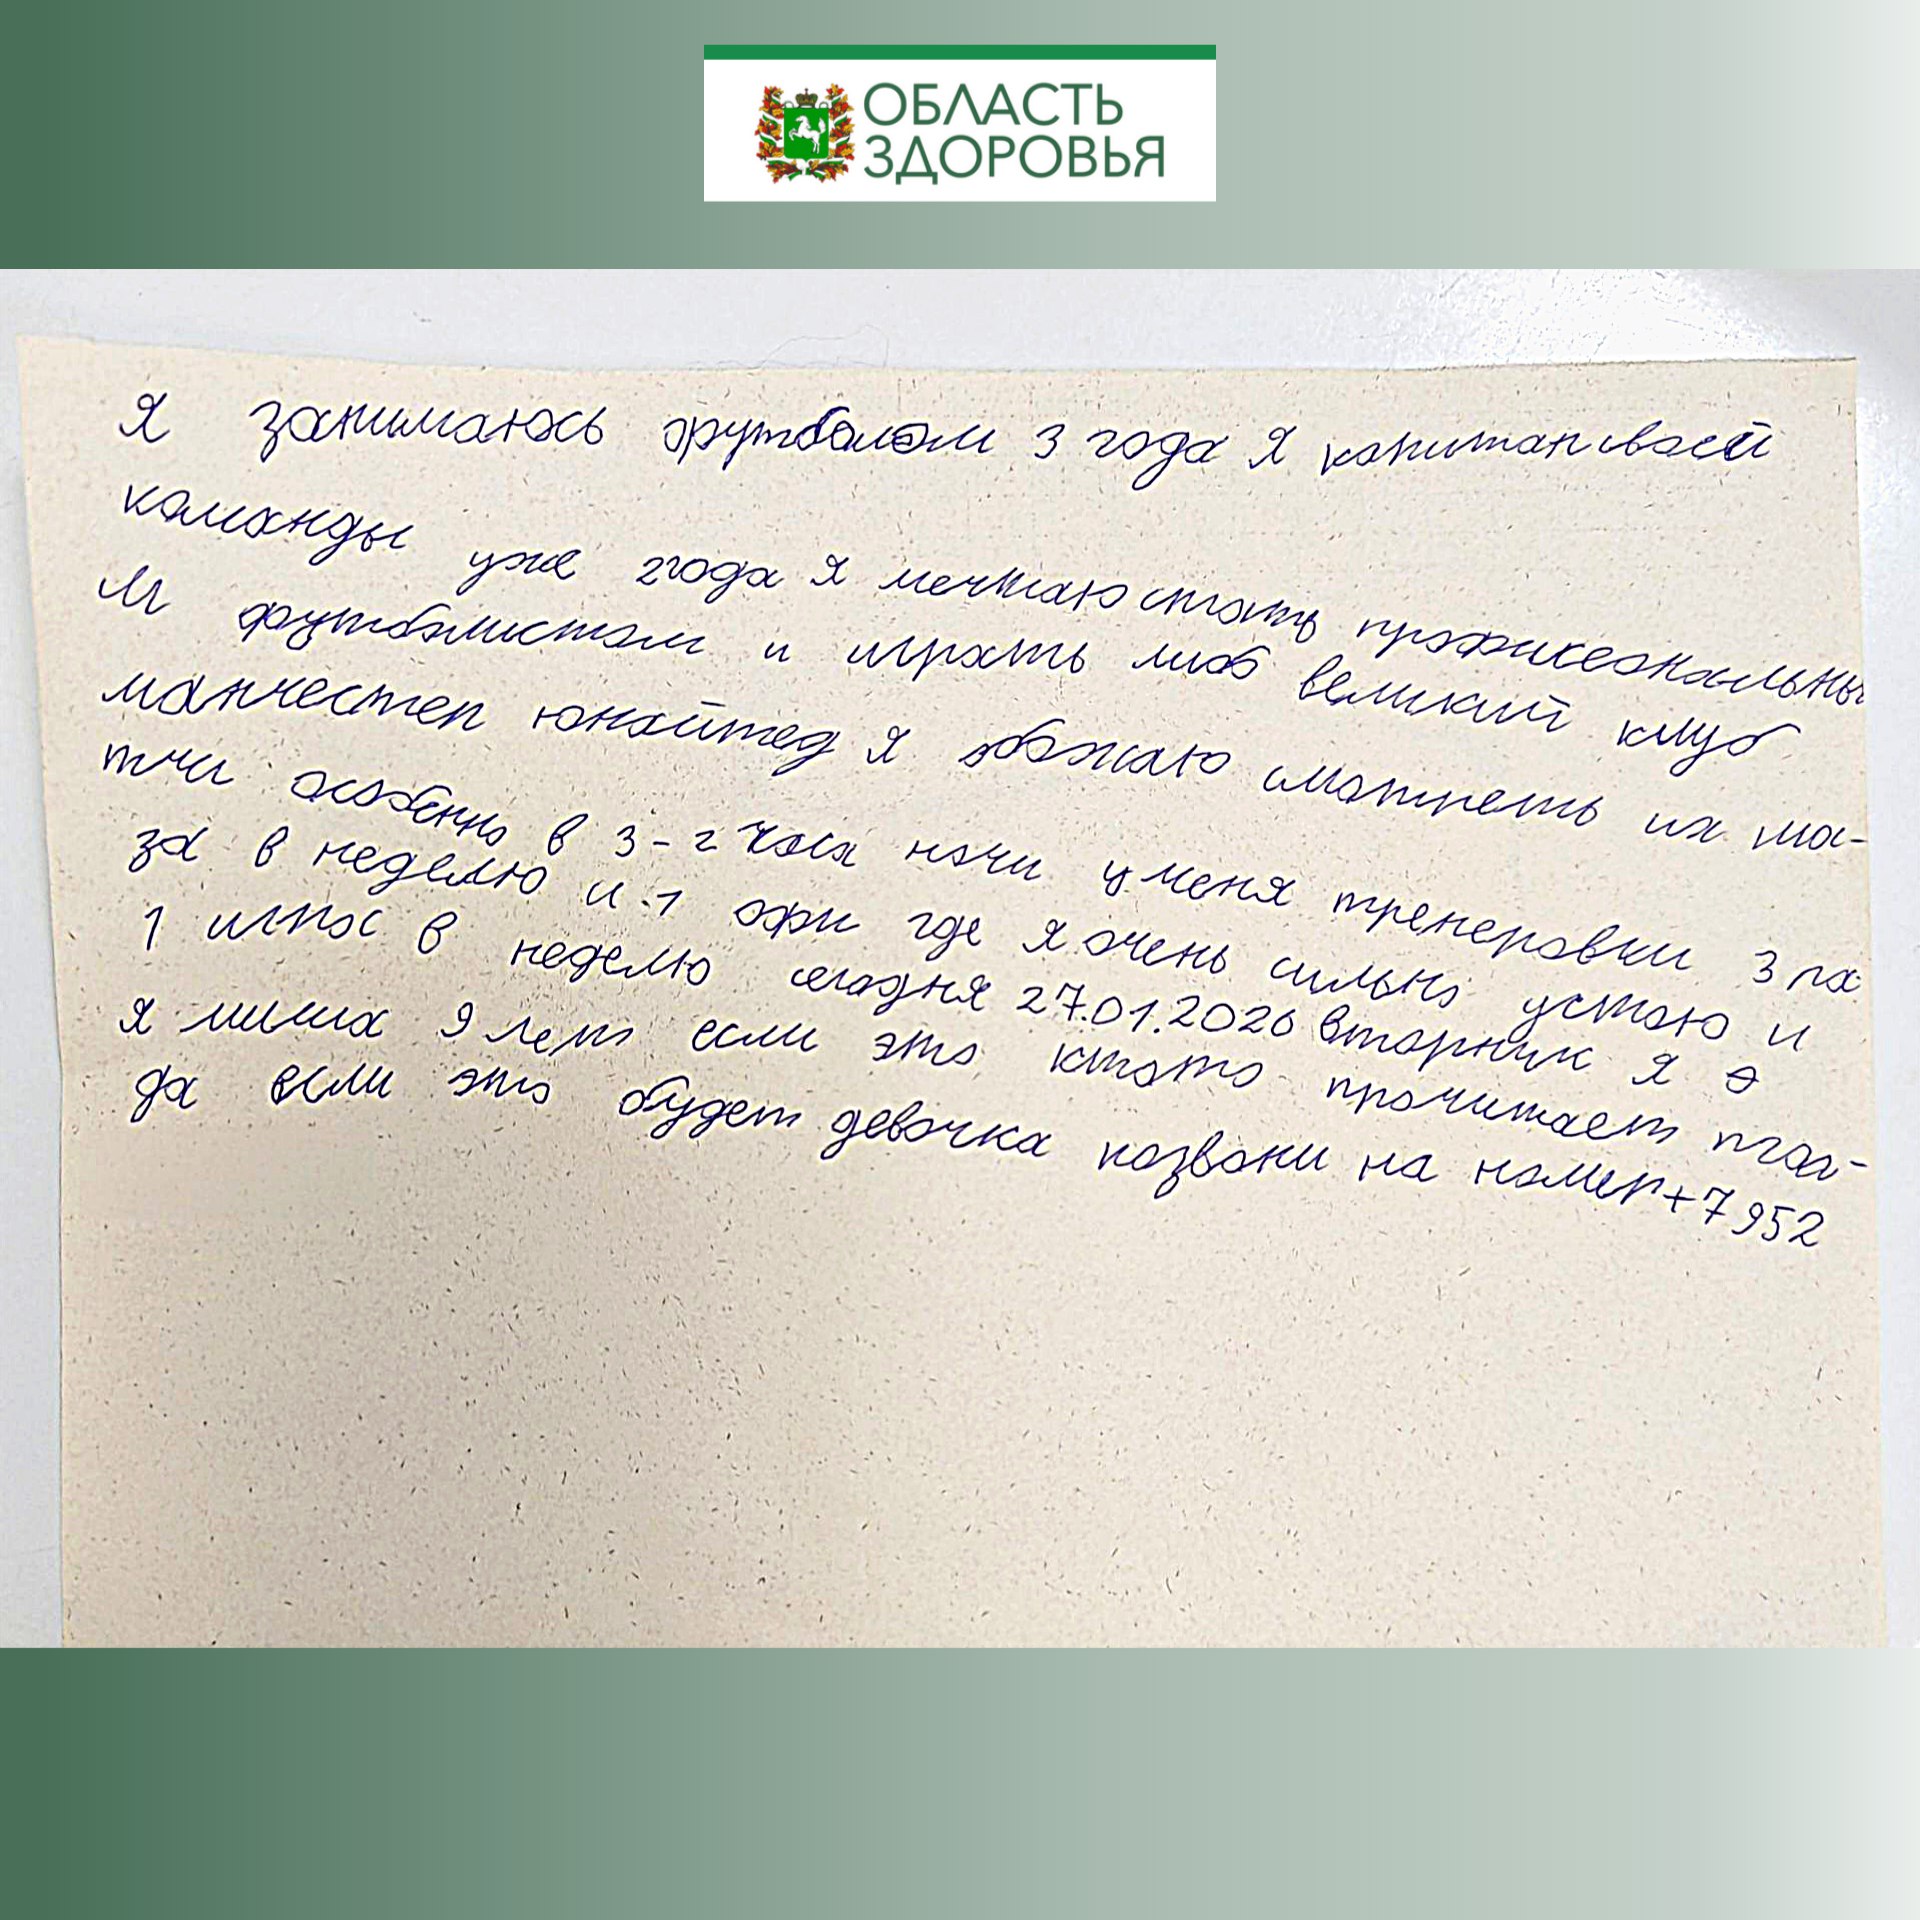 ОБЛАСТЬ
ЗДОРОВЬЯ
Я занимаюсь футболом 3 года Я капитан своей
команды уже 2 года Я мечтаю стать профисеональны
м футболистом и играть миоб великий клуб
манчестер юнайтед я обожаю смотреть их ма-
тчи особенно в 3-2 часа ночи у меня тренеровки 3 ра
за в неделю и 1 офп где я очень сильно устаю и
1 игра в неделю сегодня 27.01.2026 вторник я
я миша 9 лет если это ктото прочитает
да если это будет девочка позвони на номер +7 952